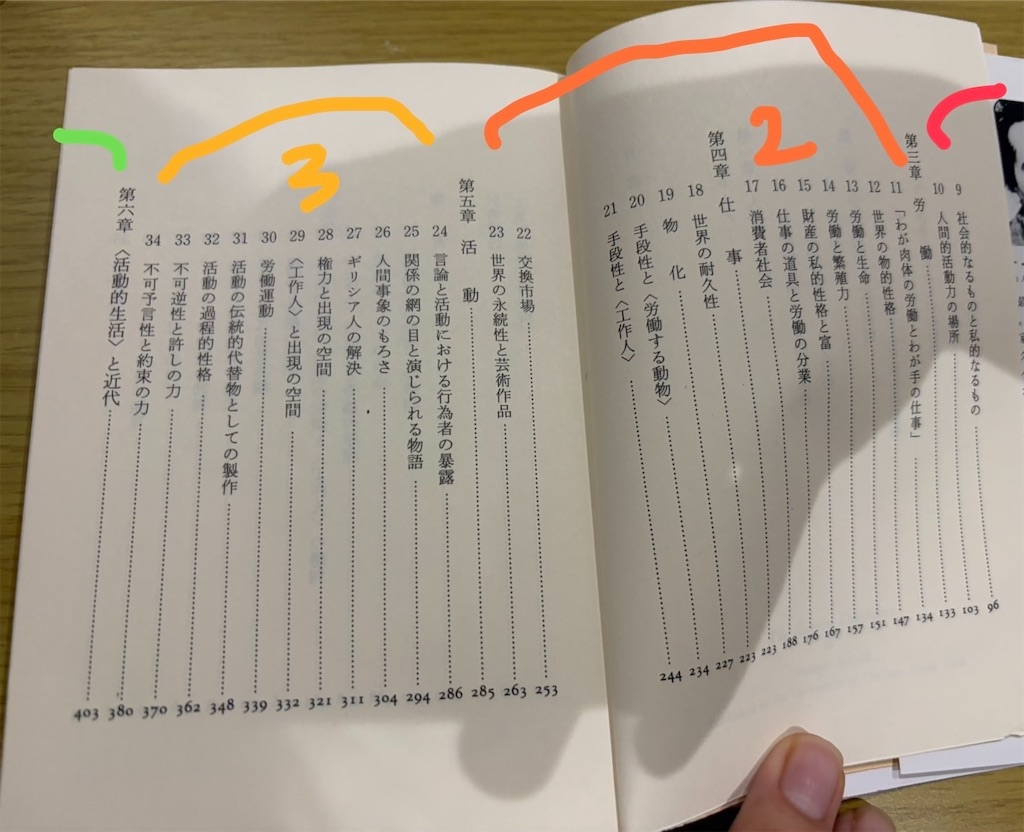 2
9 社会的なるものと私的なるもの 96
10 人間的活動力の場所 103
第三章 労働 133
11 「わが肉体の労働とわが手の仕事」 134
12 世界の物的性格 147
13 労働と生命 151
14 労働と繁殖力 157
15 財産の私的性格と富 167
16 仕事の道具と労働の分業 176
17 消費者社会 188
第四章 仕事 223
18 世界の耐久性 223
19 物化 227
20 手段性と〈労働する動物〉 234
21 手段性と〈工作人〉 244
3
22 交換市場 253
23 世界の永続性と芸術作品 263
第五章 活動 285
24 言論と活動における行為者の暴露 286
25 関係の網の目と演じられる物語 294
26 人間事象のもろさ 304
27 ギリシア人の解決 311
28 権力と出現の空間 321
29 〈工作人〉と出現の空間 332
30 労働運動 339
31 活動の伝統的代替物としての製作 348
32 活動の過程的性格 362
33 不可逆性と許しの力 370
34 不可予言性と約束の力 380
第六章 〈活動的生活〉と近代 403